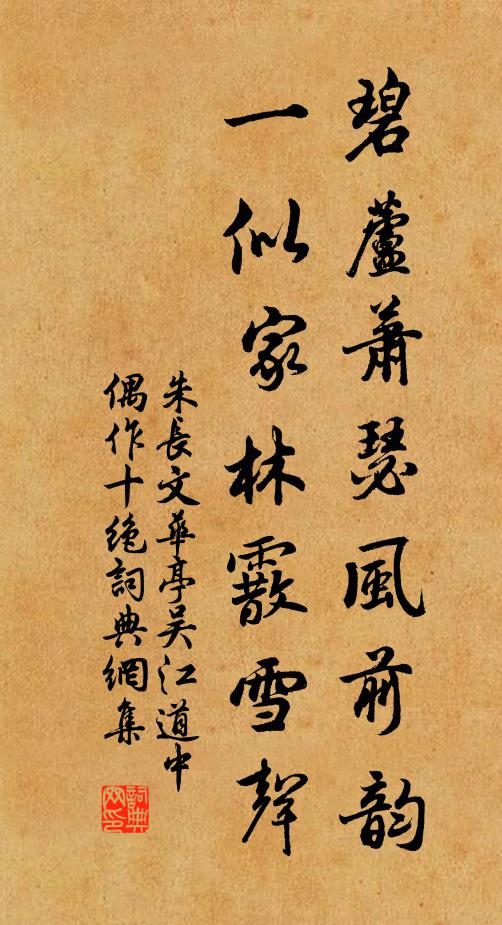 碧蘆蕭瑟風前韵
一似家林霰雪聲
朱長文華亭吳江道中
偶作十絶詞典網集
詞典網印